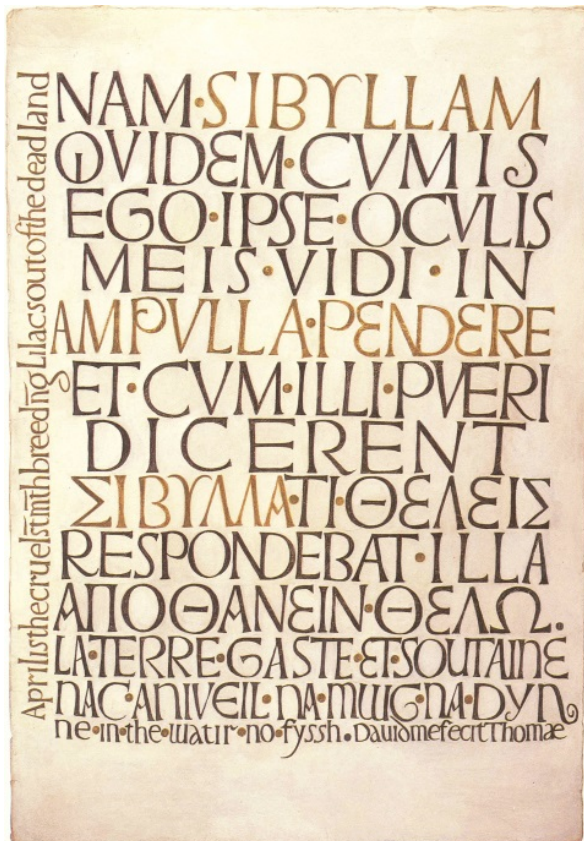 Aprilisthecruelstm̄thbreedn̄gLilacsoutofthedeadland
NAM·SIBYLLAM
QVIDEM·CVMIS
EGO·IPSE·OCVLIS
MEIS·VIDI·IN
AMPVLLA·PENDERE
ET·CVM·ILLI·PVERI
DICERENT
ΣΙΒΥΛΛΑ·ΤΙ·ΘΕΛΕΙΣ
RESPONDEBAT·ILLA
ΑΠΟΘΑΝΕΙΝ·ΘΕΛΩ.
LA·TERRE·GASTE·ET·SOUTAINE
NAC·ANIVEIL·NA·MWG·NA·DYN
ne·in·the·watir·no·fyssh.DauidmefecitThomae